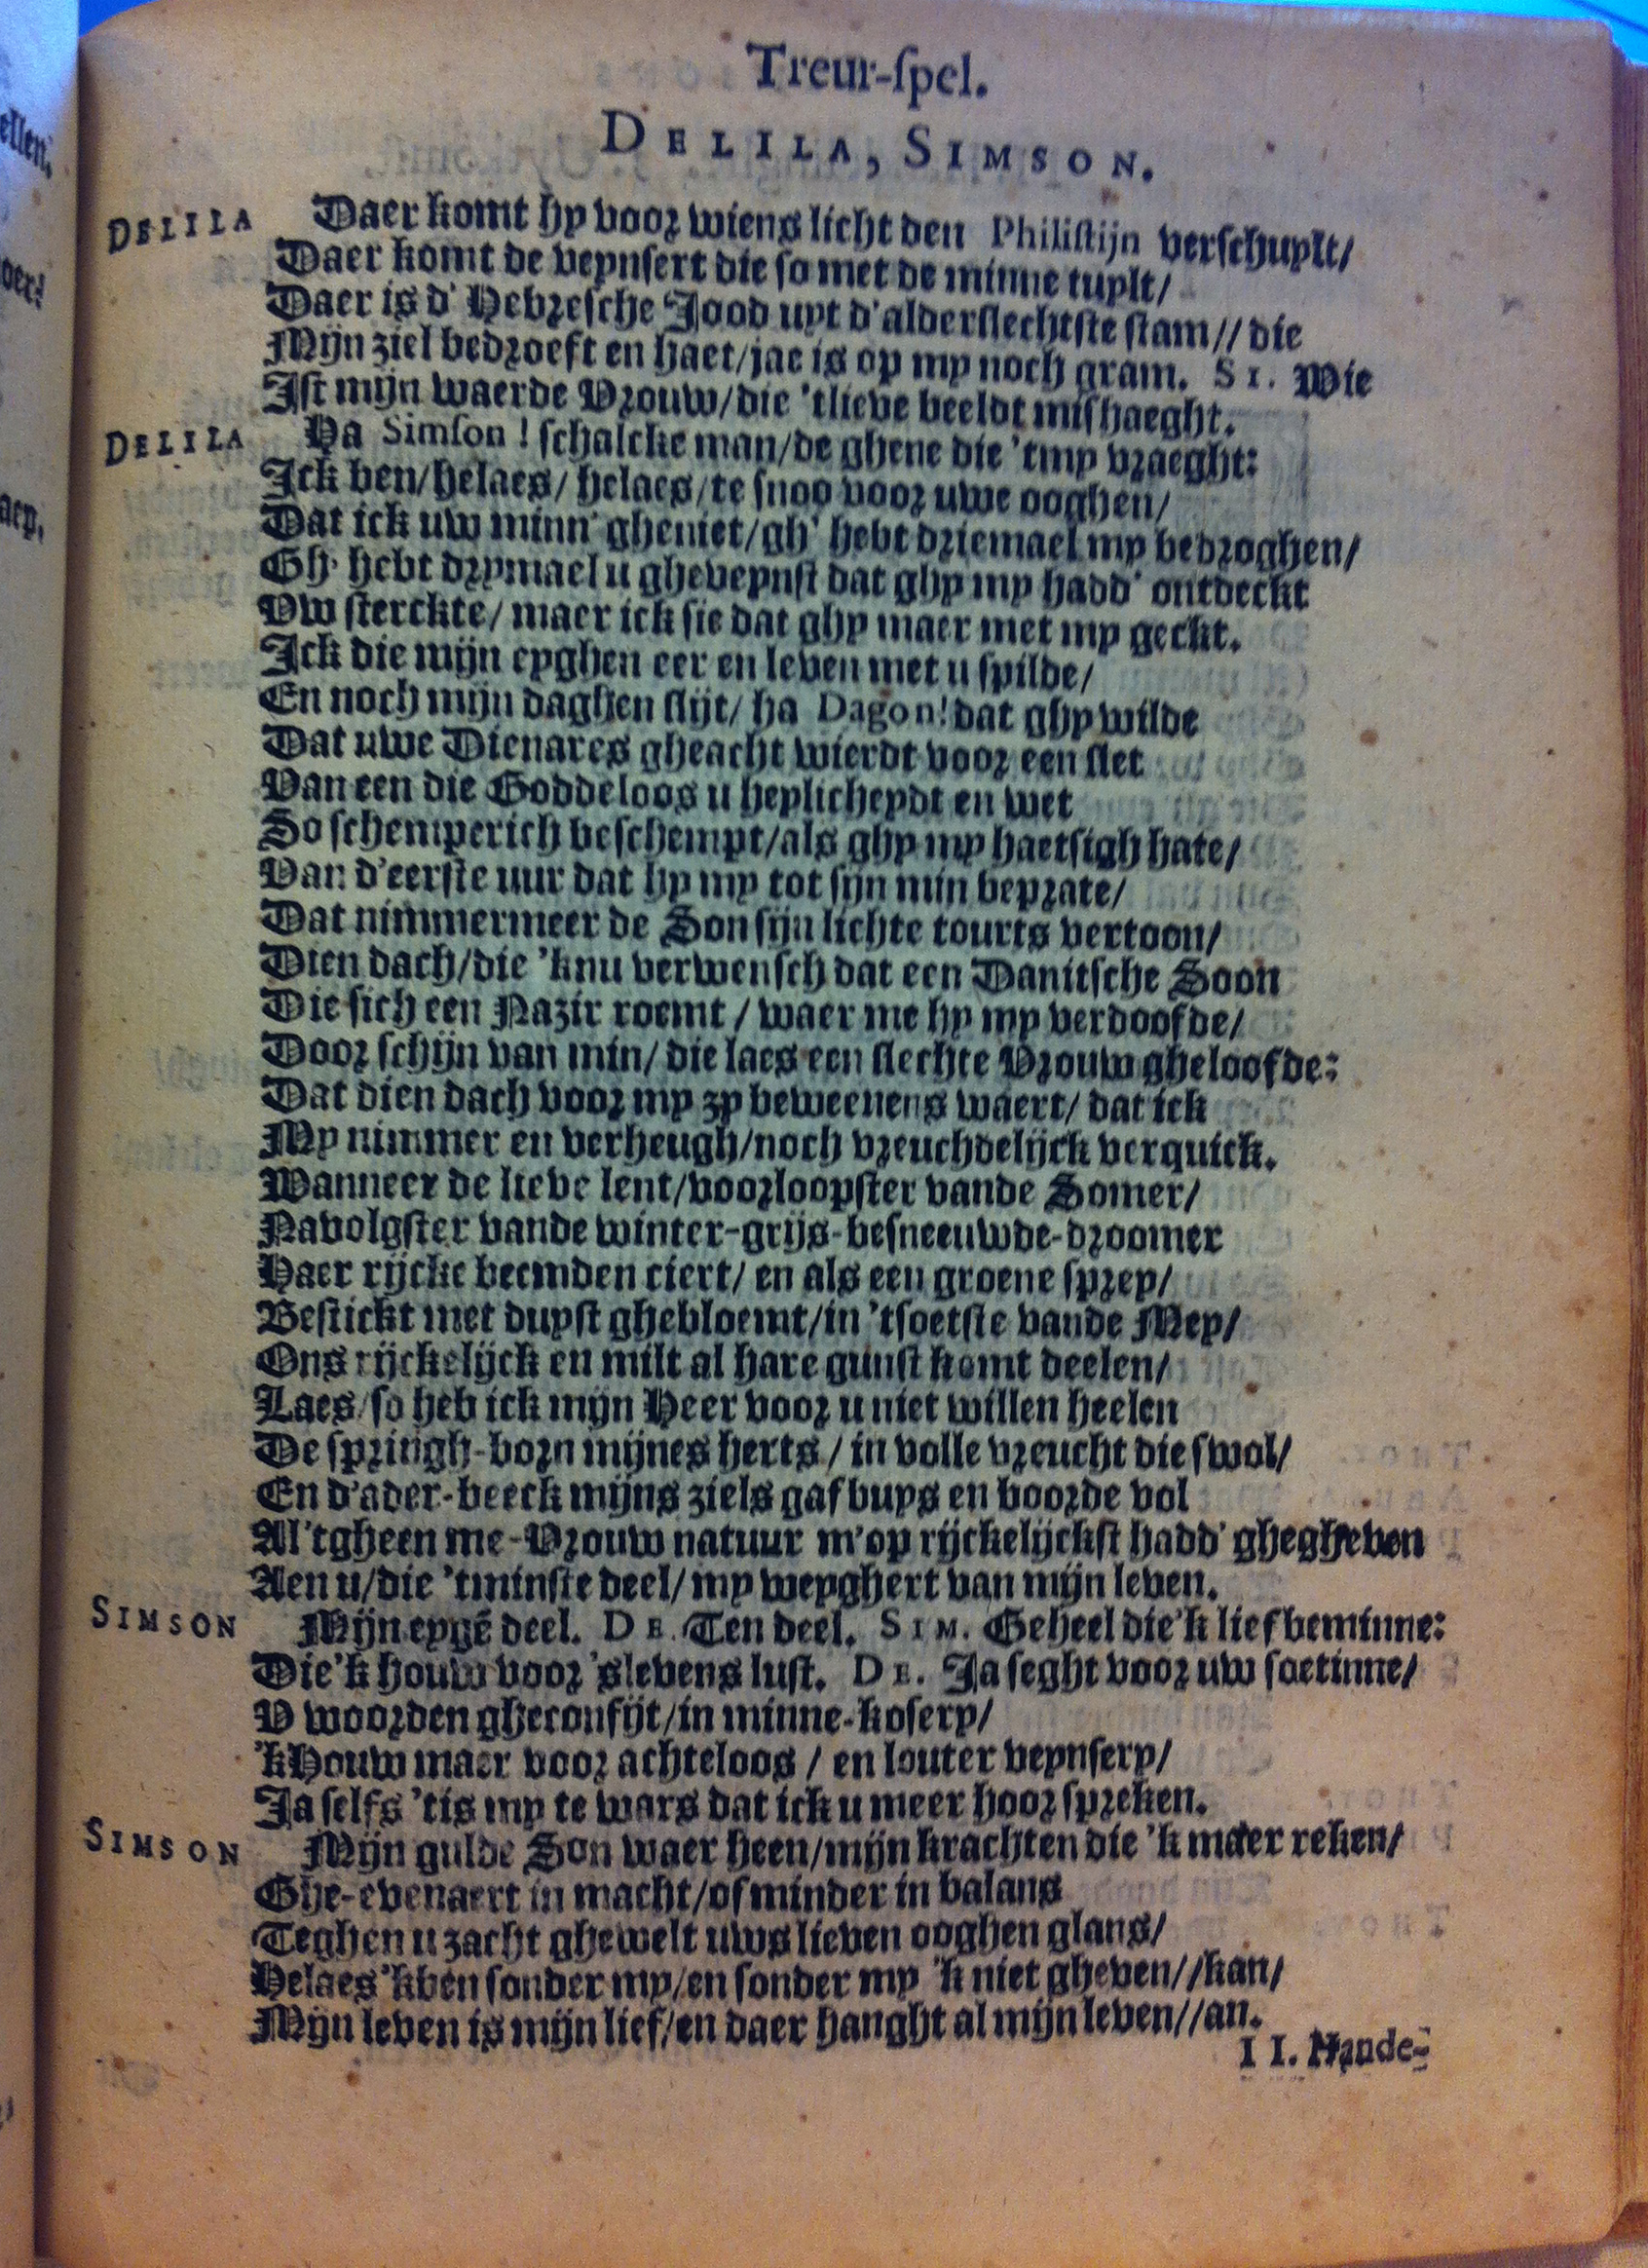 Treur-spel.
DELILA, SIMSON.
DELILA Daer komt hy voor wiens licht den Philistijn verschuylt/
Daer komt de veynsert die so met de minne tuylt/
Daer is d' Hebresche Jood uyt d'alderslechtste stam//die
Mijn ziel bedroeft en haet/jae is op my noch gram. SI. Wie
Ist mijn waerde Vrouw/die 'tlieve beeldt mishaeght.
DELILA Ha Simson! schalcke man/de ghene die 'tmy vraeght:
Ick ben/helaes/helaes/te snoo voor uwe ooghen/
Dat ick uw minn' gheniet/gh' hebt driemael my bedroghen/
Gh' hebt drymael u gheveynst dat ghy my hadd' ontdeckt
Uw sterckte/maer ick sie dat ghy maer met my geckt.
Ick die mijn eyghen eer en leven met u spilde/
En noch mijn daghen slijt/ha Dagon! dat ghy wilde
Dat uwe Dienares gheacht wierdt voor een slet
Van een die Goddeloos u heylicheydt en wet
So schemperich beschempt/als ghy my haetsigh hate/
Van d'eerste uur dat hy my tot sijn min beprate/
Dat nimmermeer de Son sijn lichte tourts vertoon/
Dien dach/die 'knu verwensch dat een Danitsche Soon
Die sich een Nazir roemt/waer me hy my verdoofde/
Door schijn van min/die laes een slechte Vrouw gheloofde:
Dat dien dach voor my zy beweenens waert/dat ick
My nimmer en verheugh/noch vreuchdelijck verquick.
Wanneer de lieve lent/voorloopster vande Somer/
Navolgster vande winter-grijs-besneeuwde-droomer
Haer rijcke beemden ciert/en als een groene sprey/
Bestickt met duyst ghebloemt/in 'tsoetste vande Mey/
Ons rijckelijck en milt al hare gunst komt deelen/
Laes/so heb ick mijn Heer voor u niet willen heelen
De springh-born mijnes herts/in volle vreucht die swol/
En d'ader-beeck mijns ziels gaf buys en boorde vol
Al 'tgheen me-Vrouw natuur m'op rijckelijckst hadd' ghegheven
Aen u/die 'tminste deel/my weyghert van mijn leven.
SIMSON Mijn eygē deel. DE. Ten deel. SIM. Geheel die'k lief beminne:
Die'k houw voor 'slevens lust. DE. Ja seght voor uw soetinne/
U woorden gheconfijt/in minne-kosery/
'kHouw maer voor achteloos/en louter veynsery/
Ja selfs 'tis my te wars dat ick u meer hoor spreken.
SIMSON Mijn gulde Son waer heen/mijn krachten die 'k maer reken/
Ghe-evenaert in macht/of minder in balans
Teghen u zacht ghewelt uws lieven ooghen glans/
Helaes 'kben sonder my/en sonder my 'k niet gheven//kan/
Mijn leven is mijn lief/en daer hanght al mijn leven//an.
II. Hande-